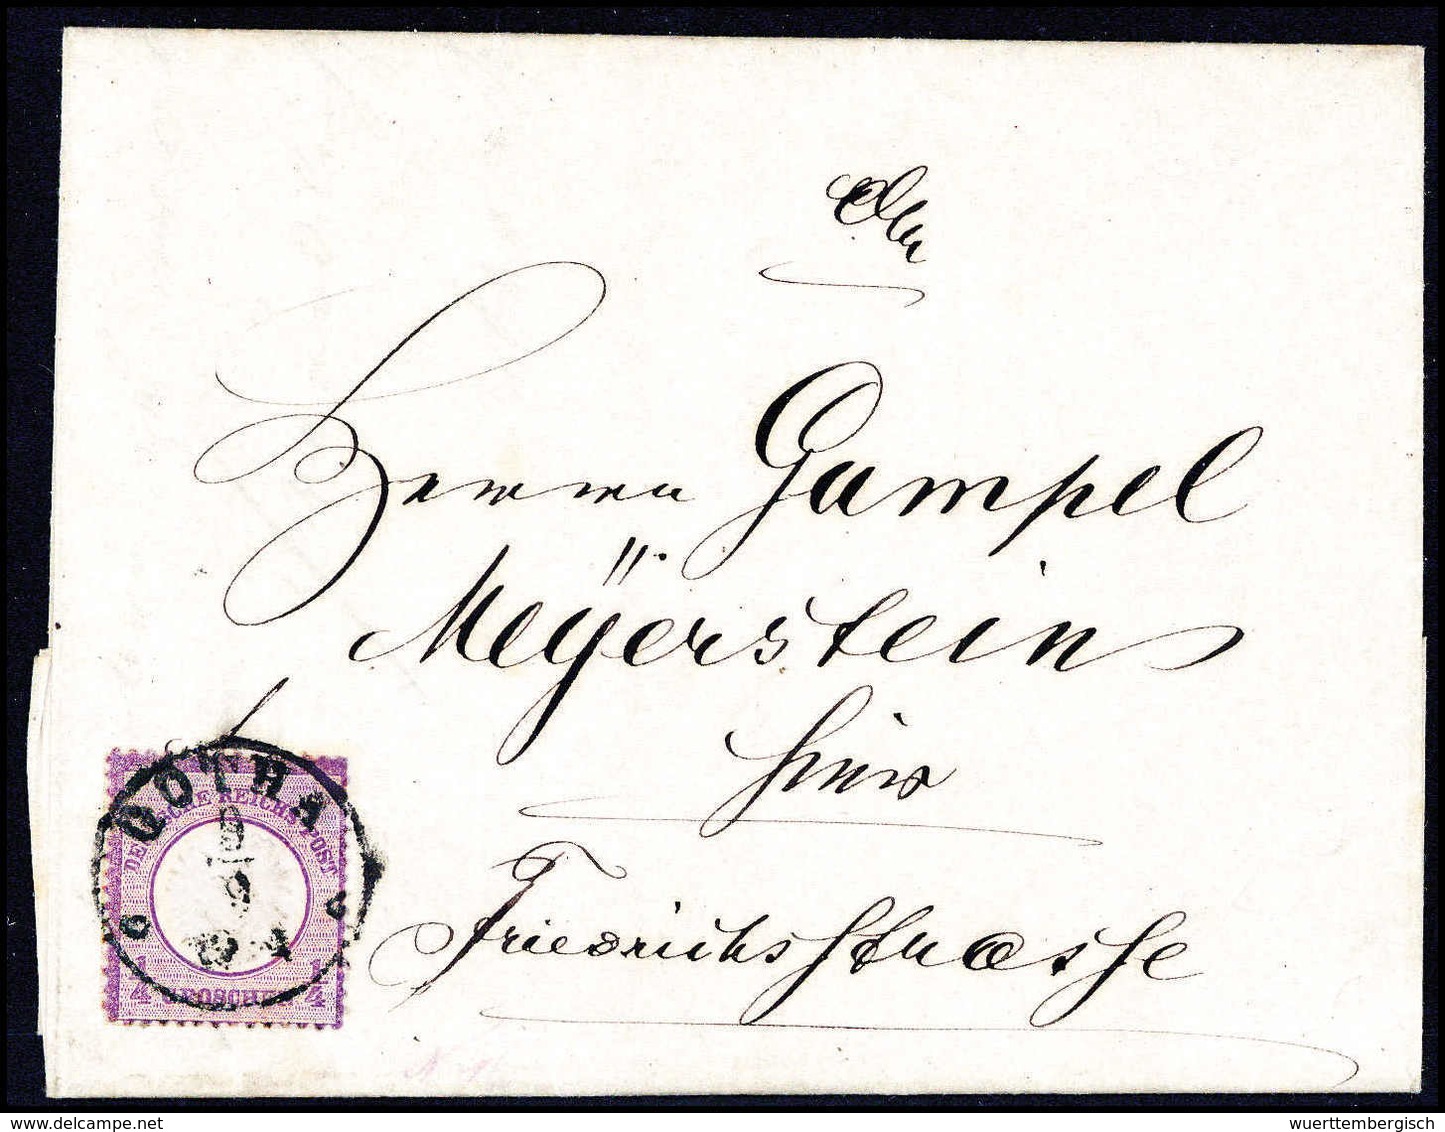 Herrn Gumpel
Meyerstein
hier
Friedrichsstrasse
GOTHA
DEUTSCHE REICHS-POST
1/4 GROSCHEN 1/4
wuerttembergisch